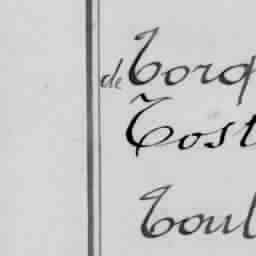 de Torq
Tost
Toul